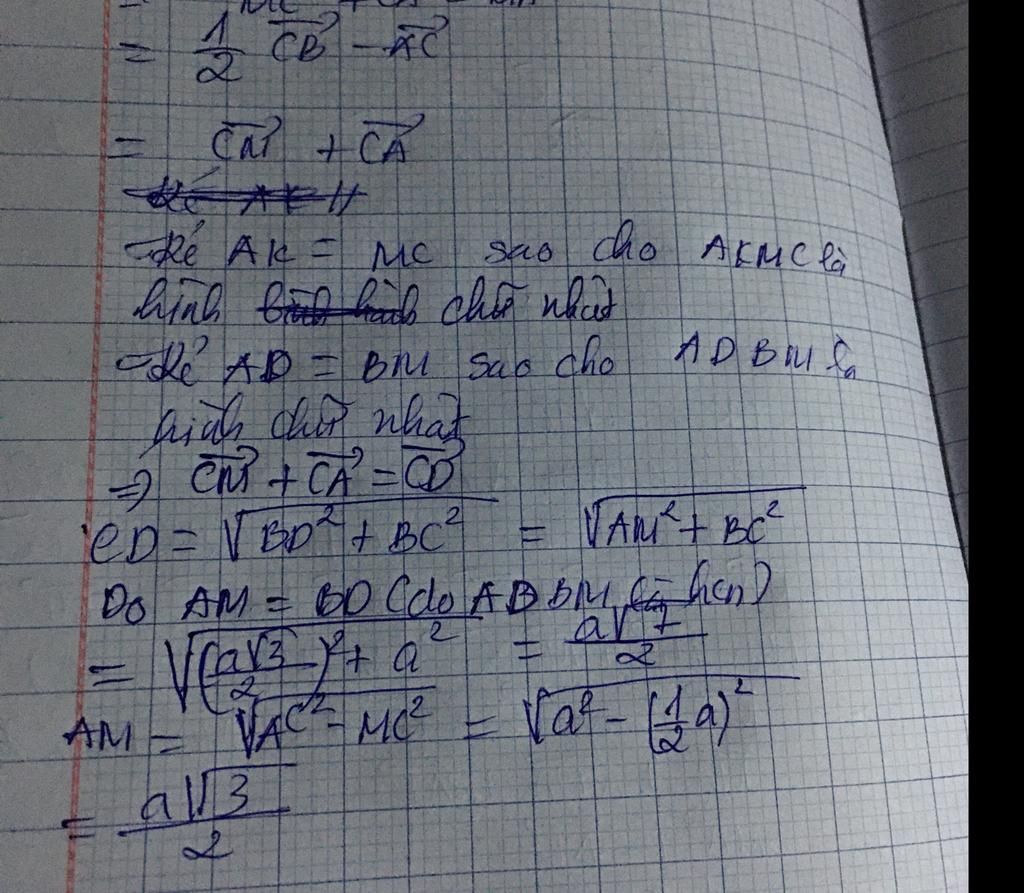 = 1/2 CB⃗ - AC⃗
= CM⃗ + CA⃗
Kẻ AK //
- Kẻ AK = MC sao cho AKMC là
hình bình hành chữ nhật
- Kẻ AD = BM sao cho ADBM là
hình chữ nhật
⇒ CM⃗ + CA⃗ = CD⃗
CD = √(BD² + BC²) = √(AM² + BC²)
Do AM = BD (do ADBM là hcn)
= √((a√3/2)² + a²) = a√7/2
AM = √(AC² - MC²) = √(a² - (1/2 a)²)
= a√3/2